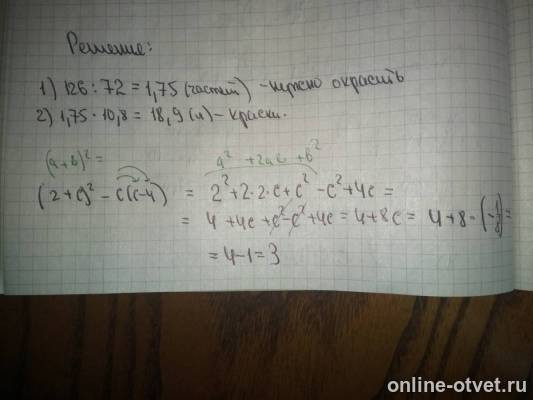 Решение:
1) 126 : 72 = 1,75 (частей) - нужно окрасить
2) 1,75 · 10,8 = 18,9 (л) - краски.
(a+b)² = a² + 2ac + b²
(2+c)² - c(c-4) = 2² + 2·2·c + c² - c² + 4c =
= 4 + 4c + c² - c² + 4c = 4 + 8c = 4 + 8 · (-1/8) =
= 4 - 1 = 3
online-otvet.ru